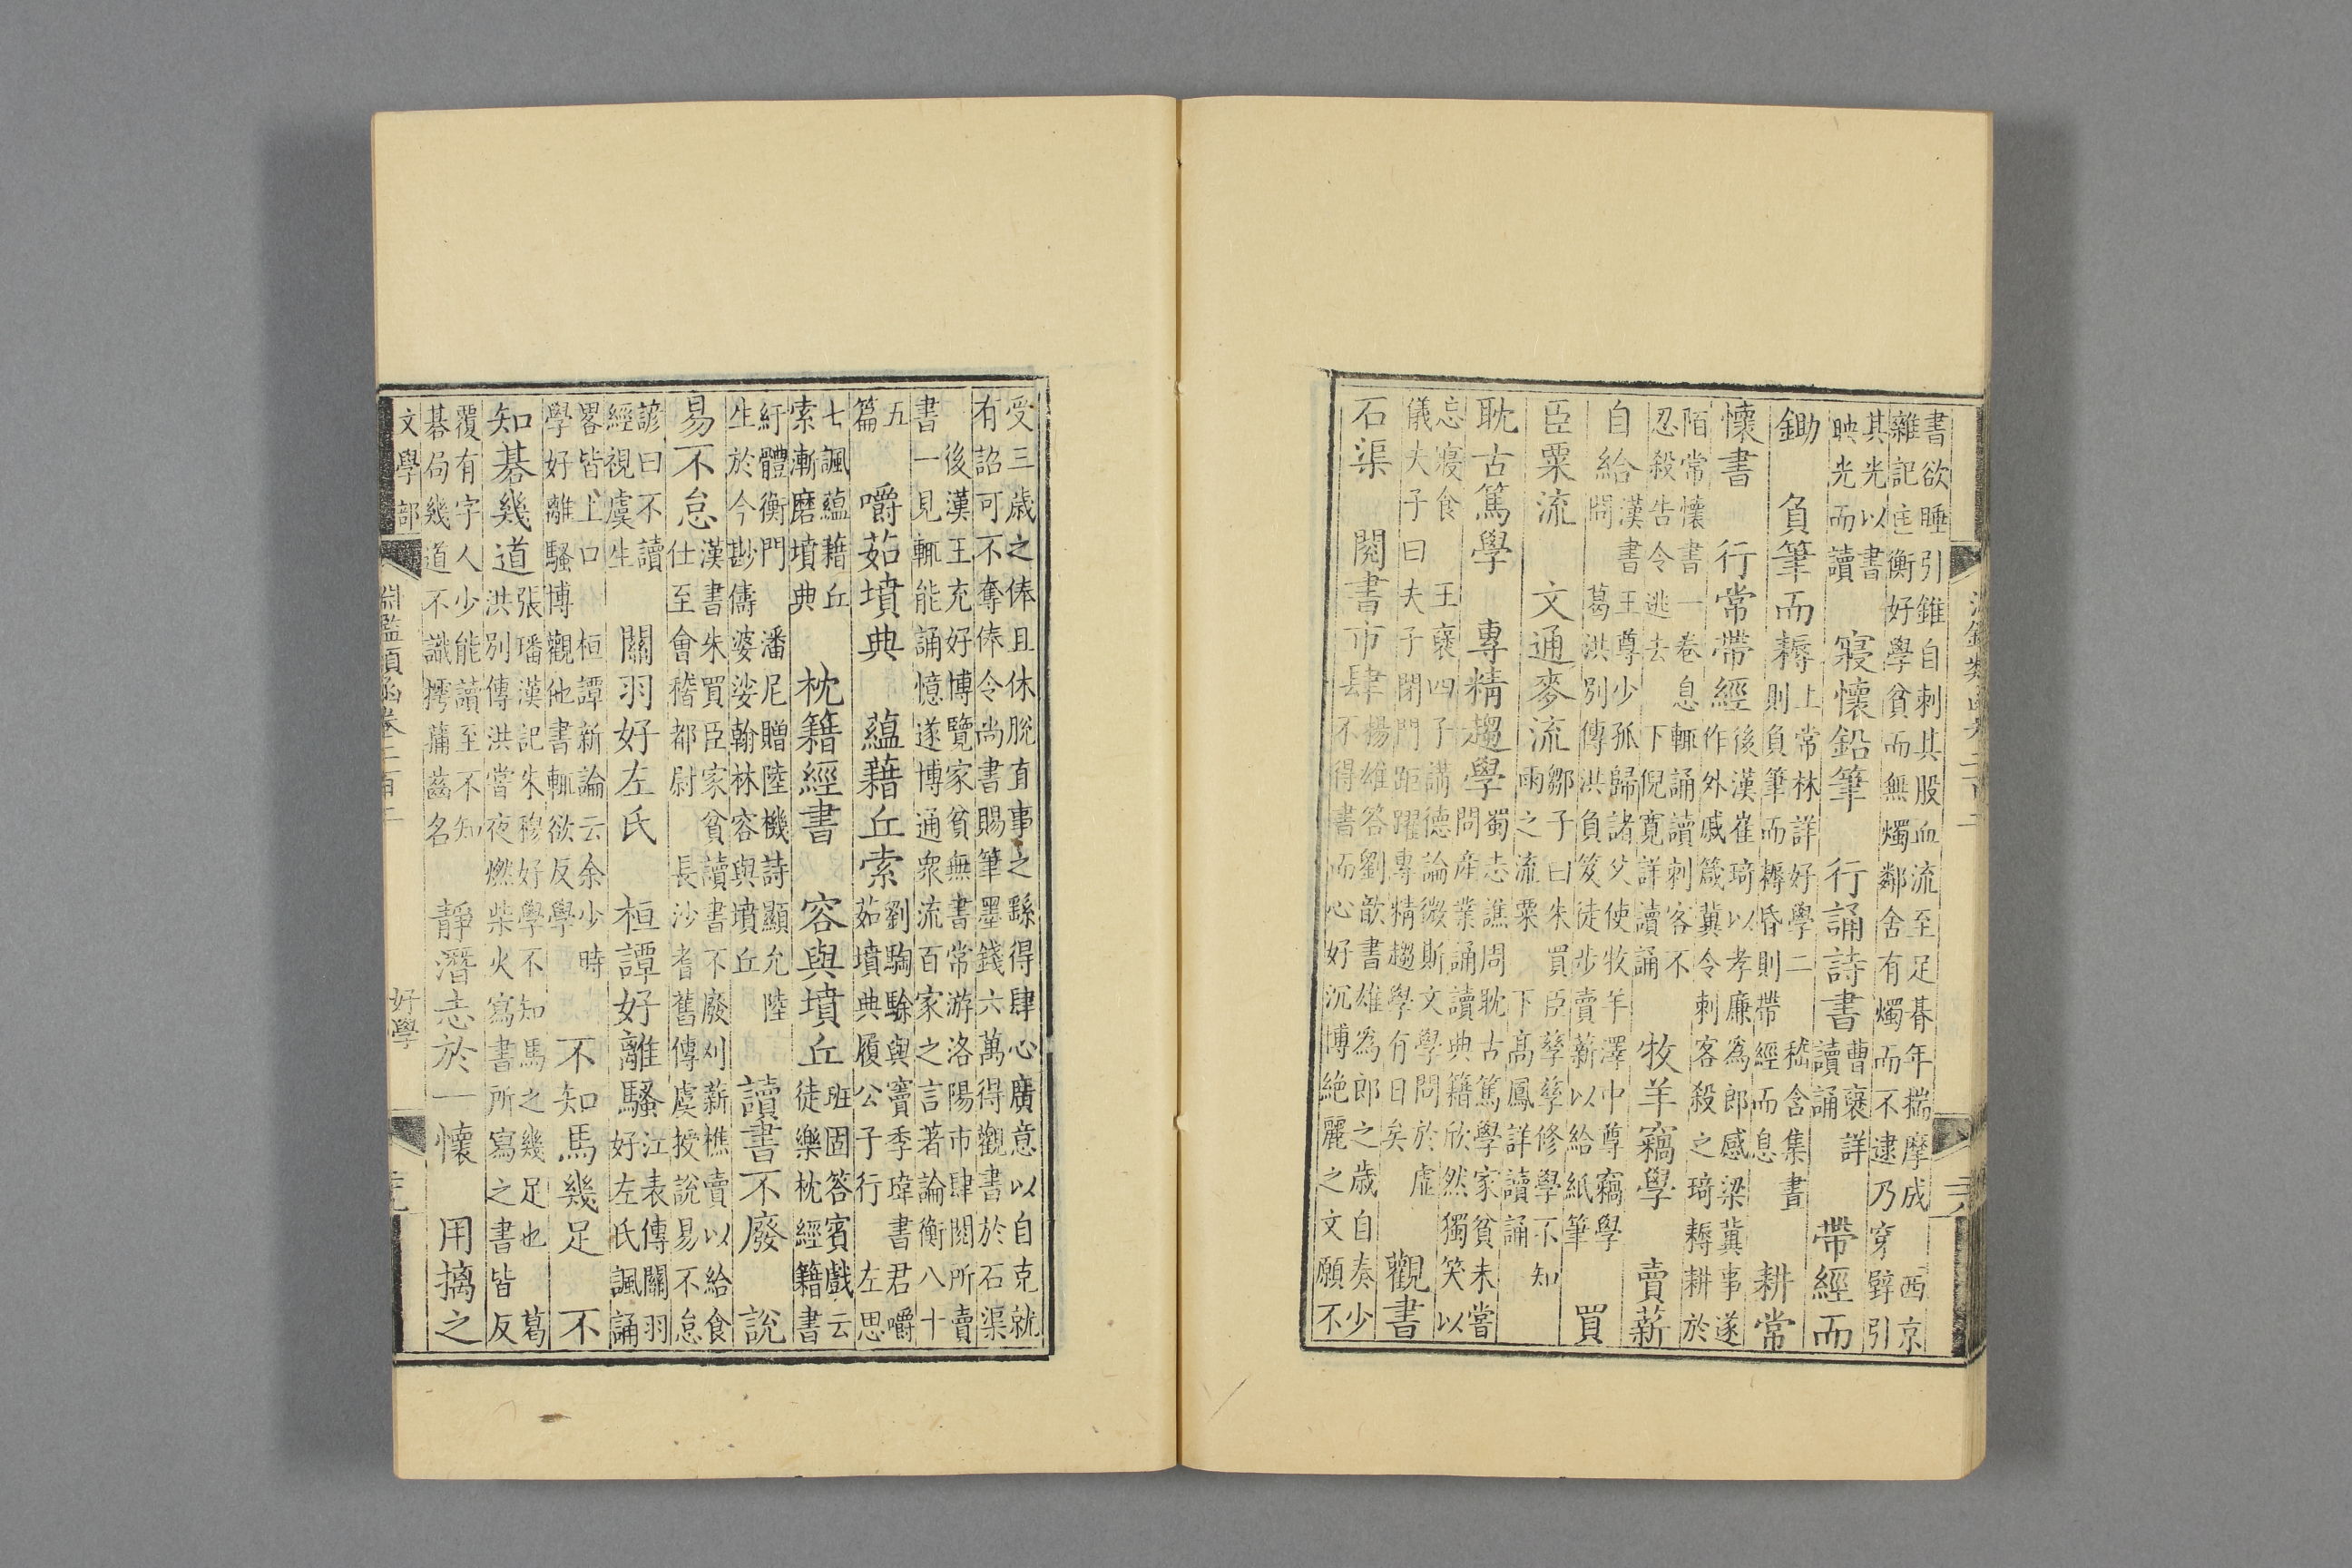 書欲睡引錐自刺其股血流至足朞年揣摩成 西京
雜記匡衡好學貧而無燭鄰舍有燭而不逮乃穿壁引
其光以書
映光而讀
寢懷鉛筆 行誦詩書
曹褒詳
讀誦
帶經而
鋤 負筆而耨
上常林詳好學二 嵇含集書
則負筆而耨昏則帶經而息
耕常
懷書 行常帶經
後漢崔琦以孝廉為郎感梁冀事遂
作外戚箴冀令刺客殺之琦耨耕於
陌常懷書一卷息輒誦讀刺客不
忍殺告令逃去 下倪寬詳讀誦
牧羊竊學 賣薪
自給
漢書王尊少孤歸諸父使牧羊澤中尊竊學
問 葛洪別傳洪負笈徒步賣薪以給紙筆
買
臣粟流 文通麥流
鄒子曰朱買臣孳孳修學不知
雨之流粟 下高鳳詳讀誦
耽古篤學 專精趨學
蜀志譙周耽古篤學家貧未嘗
問産業誦讀典籍欣然獨笑以
忘寢食 王襃四子講德論微斯文學問於虛
儀夫子曰夫子閉門距躍專精趨學有日矣
觀書
石渠 閱書市肆
楊雄答劉歆書雄為郎之歲自奏少
不得書而心好沉博絶麗之文願不
受三歳之俸且休脫直事之繇得肆心廣意以自克就
有詔可不奪俸令尚書賜筆墨錢六萬得觀書於石渠
後漢王充好博覽家貧無書常游洛陽市肆閱所賣
書一見輒能誦憶遂博通衆流百家之言著論衡八十
五
篇
嚼茹墳典 蘊藉丘索
劉騊駼與竇季瑋書君嚼
茹墳典履公子行 左思
七諷蘊藉丘
索漸磨墳典
枕籍經書 容與墳丘
班固答賓戲云
徒樂枕經籍書
紆體衡門 潘尼贈陸機詩顯允陸
生於今尠儔婆娑翰林容與墳丘
讀書不廢 説
易不怠
漢書朱買臣家貧讀書不廢刈薪樵賣以給食
仕至會稽都尉 長沙耆舊傳虞授説易不怠
諺曰不讀
經視虞生
關羽好左氏 桓譚好離騷
江表傳關羽
好左氏諷誦
畧皆上口 桓譚新論云余少時
學好離騷博觀他書輒欲反學
不知馬幾足 不
知碁幾道
張璠漢記朱穆好學不知馬之幾足也 葛
洪別傳洪嘗夜燃柴火寫書所寫之書皆反
覆有字人少能讀至不知
碁局幾道不識摴蒱齒名
靜潛志於一懷 用摛之
文學部 淵鑑類函卷二百二 好學